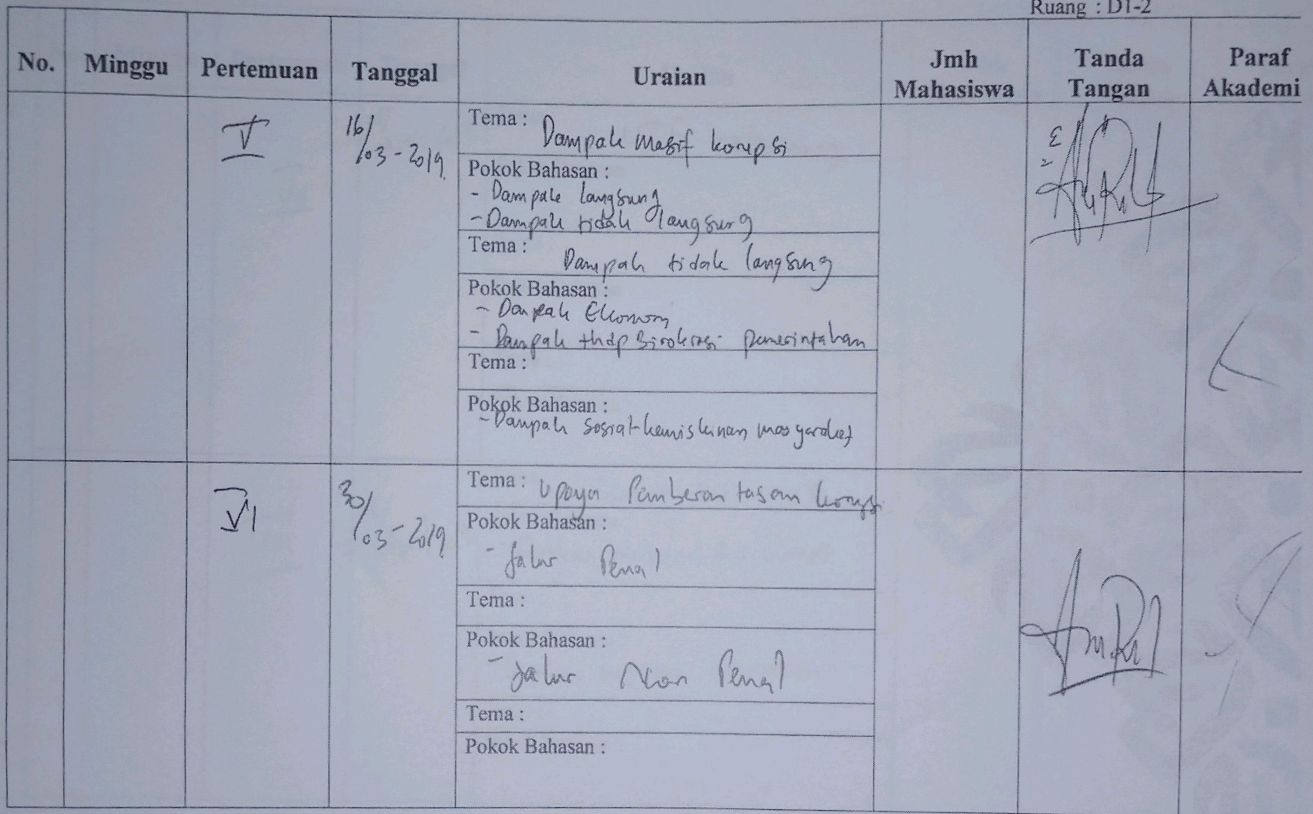 Ruang : D1-2
No. Minggu Pertemuan Tanggal Uraian Jmh Mahasiswa Tanda Tangan Paraf Akademi
V 16/03-2019
Tema : Dampak masif korupsi
Pokok Bahasan :
- Dampak langsung
- Dampak tidak langsung
Tema : Dampak tidak langsung
Pokok Bahasan :
- Dampak Ekonomi
- Dampak thdp Birokrasi pemerintahan
Tema :
Pokok Bahasan :
- Dampak sosial-kemiskinan masyarakat
VI 30/03-2019
Tema : Upaya Pemberantasan korupsi
Pokok Bahasan :
- Jalur Penal
Tema :
Pokok Bahasan :
- Jalur Non Penal
Tema :
Pokok Bahasan :